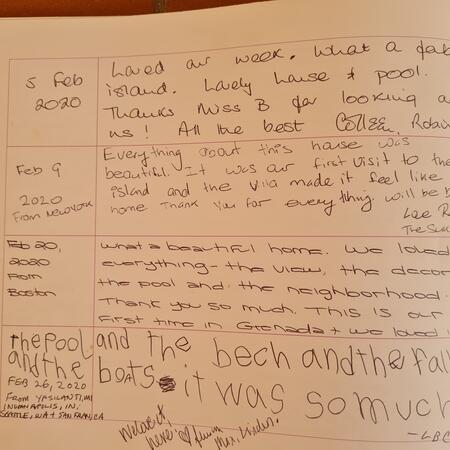 5 Feb
2020
Loved our week. What a fab
island. Lovely house & pool.
Thanks Miss B for looking a
us! All the best Robin
Feb 9
2020
From New York
Everything about this house was
beautiful. It was our first visit to the
island and the villa made it feel like
home Thank you for everything. will be b
Lee R
The Su
Feb 20,
2020
From
Boston
What a beautiful home. We loved
everything - the view, the decor
the pool and the neighborhood.
Thank you so much. This is our
First time in Grenada + we loved i
the pool and the bech and the fall
and the boats it was so much
FEB 26, 2020
FROM YPSILANTI, MI
INDIANAPOLIS, IN.
SEATTLE, WA + SAN FRAN, CA
We love it
here!
Max,
-LBC